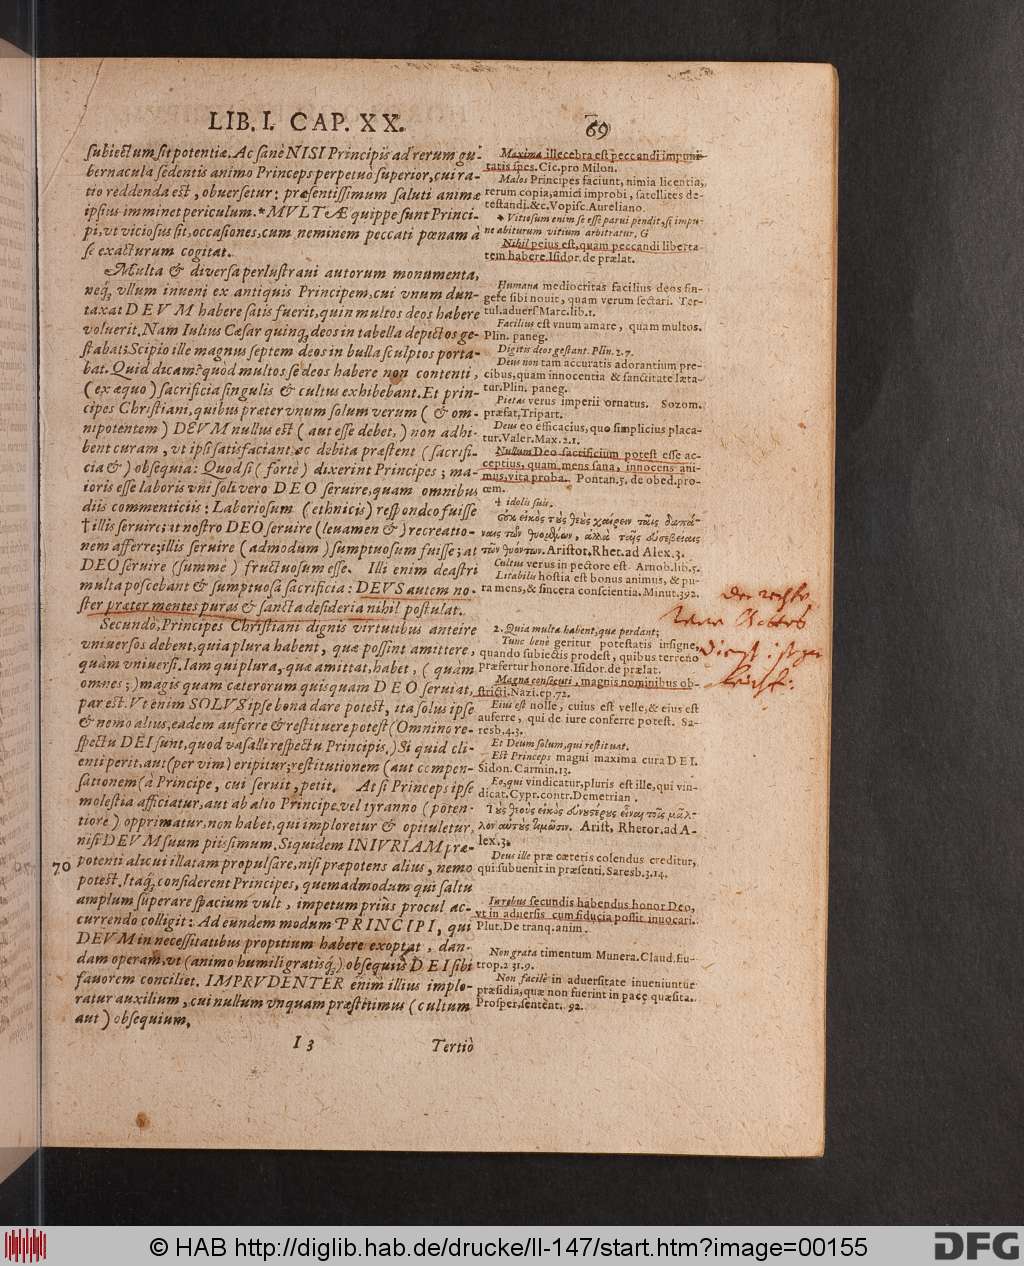 LIB. I. CAP. XX. 69
subiectum sit potentiæ. Ac sanè NISI Principis ad rerum gu-
bernacula sedentis animo Princeps perpetuò superior, cui ra-
tio reddenda est, obuersetur: præsentissimum saluti animæ
ipsius imminet periculum. * MVLTÆ quippe sunt Princi-
pi, vt viciosus sit, occasiones, cum neminem peccati pœnam à
se exacturum cogitat.
Multa & diversa perlustravi autorum monumenta,
neq; vllum inueni ex antiquis Principem, cui vnum dun-
taxat DEVM habere satis fuerit, quin multos deos habere
voluerit. Nam Iulius Cæsar quinq; deos in tabella depictos ge-
stabat: Scipio ille magnus septem deos in bulla sculptos porta-
bat. Quid dicam? quòd multos se deos habere non contenti,
(ex æquo) sacrificia singulis & cultus exhibebant. Et prin-
cipes Christiani, quibus præter vnum solum verum (& om-
nipotentem) DEVM nullus est (aut esse debet,) non adhi-
bent curam, vt ipsi satisfaciant: ac debita præstent (sacrifi-
cia &) obsequia: Quod si (fortè) dixerint Principes; ma-
ioris esse laboris vni soli vero DEO seruire, quam omnibus
diis commenticiis: Laboriosum (ethnicis) respondeo fuisse
† illis seruire; at nostro DEO seruire (leuamen &) recreatio-
nem afferre; illis seruire (admodum) sumptuosum fuisse; at
DEO seruire (summè) fructuosum esse. Illi enim deastri
multa poscebant & sumptuosa sacrificia: DEVS autem no-
ster præter mentes puras & sancta desideria nihil postulat.
Secundò, Principes Christiani dignis virtutibus anteire
vniuersos debent, quia plura habent, quæ possint amittere,
quàm vniuersi. Iam qui plura, quæ amittat, habet, (quàm
omnes;) magis quam cæterorum quisquam DEO seruiat,
par est. Vt enim SOLVS ipse bona dare potest, ita solus ipse
& nemo alius, eadem auferre & restituere potest (Omnino re-
spectu DEI sunt, quod vasalli respectu Principis.) Si quid cli-
enti perit, aut (per vim) eripitur; restitutionem (aut compen-
sationem) à Principe, cui seruit, petit. At si Princeps ipse
molestia afficiatur, aut ab alio Principe vel tyranno (poten-
tiore) opprimatur, non habet, qui imploretur & opituletur,
nisi DEVM suum piissimum. Siquidem INIVRIAM præ-
70 potenti alicui illatam propulsare, nisi præpotens alius, nemo
potest. Itaq; considerent Principes, quemadmodum qui saltu
amplum superare spacium vult, impetum priùs procul ac-
currendo colligit: Ad eundem modum PRINCIPI, qui
DEVM in necessitatibus propitium habere exoptat, dan-
dam operam, vt (animo humili gratisq;) obsequiis DEI sibi
fauorem conciliet. IMPRVDENTER enim illius implo-
ratur auxilium, cui nullum vnquam præstitimus (cultum
aut) obsequium.
I 3 Tertiò
Maxima illecebra est peccandi impuni-
tatis spes. Cic. pro Milon.
Malos Principes faciunt, nimia licentia,
rerum copia, amici improbi, satellites de-
testandi. &c. Vopisc. Aureliano.
* Vitiosum enim se esse parui pendit, si impu-
ne abiturum vitium arbitratur. G
Nihil peius est, quam peccandi liberta-
tem habere. Isidor. de prælat.
Humana mediocritas facilius deos fin-
gere sibi nouit, quam verum sectari. Ter-
tul. aduers Marc. lib. 1.
Facilius est vnum amare, quam multos.
Plin. paneg.
Digitis deos gestant. Plin. 2. 7.
Deus non tam accuratis adorantium pre-
cibus, quam innocentia & sanctitate læta-
tur. Plin. paneg.
Pietas verus imperii ornatus. Sozom.
præfat. Tripart.
Deus eo efficacius, quo simplicius placa-
tur. Valer. Max. 2. 1.
Nullum Deo sacrificium potest esse ac-
ceptius, quam mens sana, innocens ani-
mus, vita proba. Pontan. 5. de obed. pro-
œm.
† idolis suis.
οὐκ εἰκὸς τοὺς θεοὺς χαίρειν ταῖς δαπά-
ναις τῶν θυομένων, ἀλλὰ ταῖς εὐσεβείαις
τῶν θυόντων. Aristot. Rhet. ad Alex. 3.
Cultus verus in pectore est. Arnob. lib. 5.
Litabilis hostia est bonus animus, & pu-
ra mens, & sincera conscientia. Minut. 392.
2. Quia multa habent, quæ perdant;
Tunc benè geritur potestatis insigne,
quando subiectis prodest, quibus terreno
præfertur honore. Isidor. de prælat.
Magna consecuti, magnis nominibus ob-
stricti. Nazi. ep. 72.
Eius est nolle, cuius est velle, & eius est
auferre, qui de iure conferre potest. Sa-
resb. 4. 3.
Et Deum solum, qui restituat.
Est Princeps magni maxima cura DEI.
Sidon. Carmin. 13.
Eo, qui vindicatur, pluris est ille, qui vin-
dicat. Cypr. contr. Demetrian.
Arist. Rhetor. ad A-
lex. 3.
Deus ille præ cæteris colendus creditur,
qui subuenit in præsenti. Saresb. 3. 14.
In rebus secundis habendus honor Deo,
vt in aduersis cum fiducia possit inuocari.
Plut. De tranq. anim.
Non grata timentum Munera. Claud. Eu-
trop. 2 31. 9.
Non facilè in aduersitate inueniuntur
præsidia, quæ non fuerint in pace quæsita.
Prosper. sentent. 92.
Der rechte
Gottes
Dienst ist
© HAB http://diglib.hab.de/drucke/li-147/start.htm?image=00155
DFG